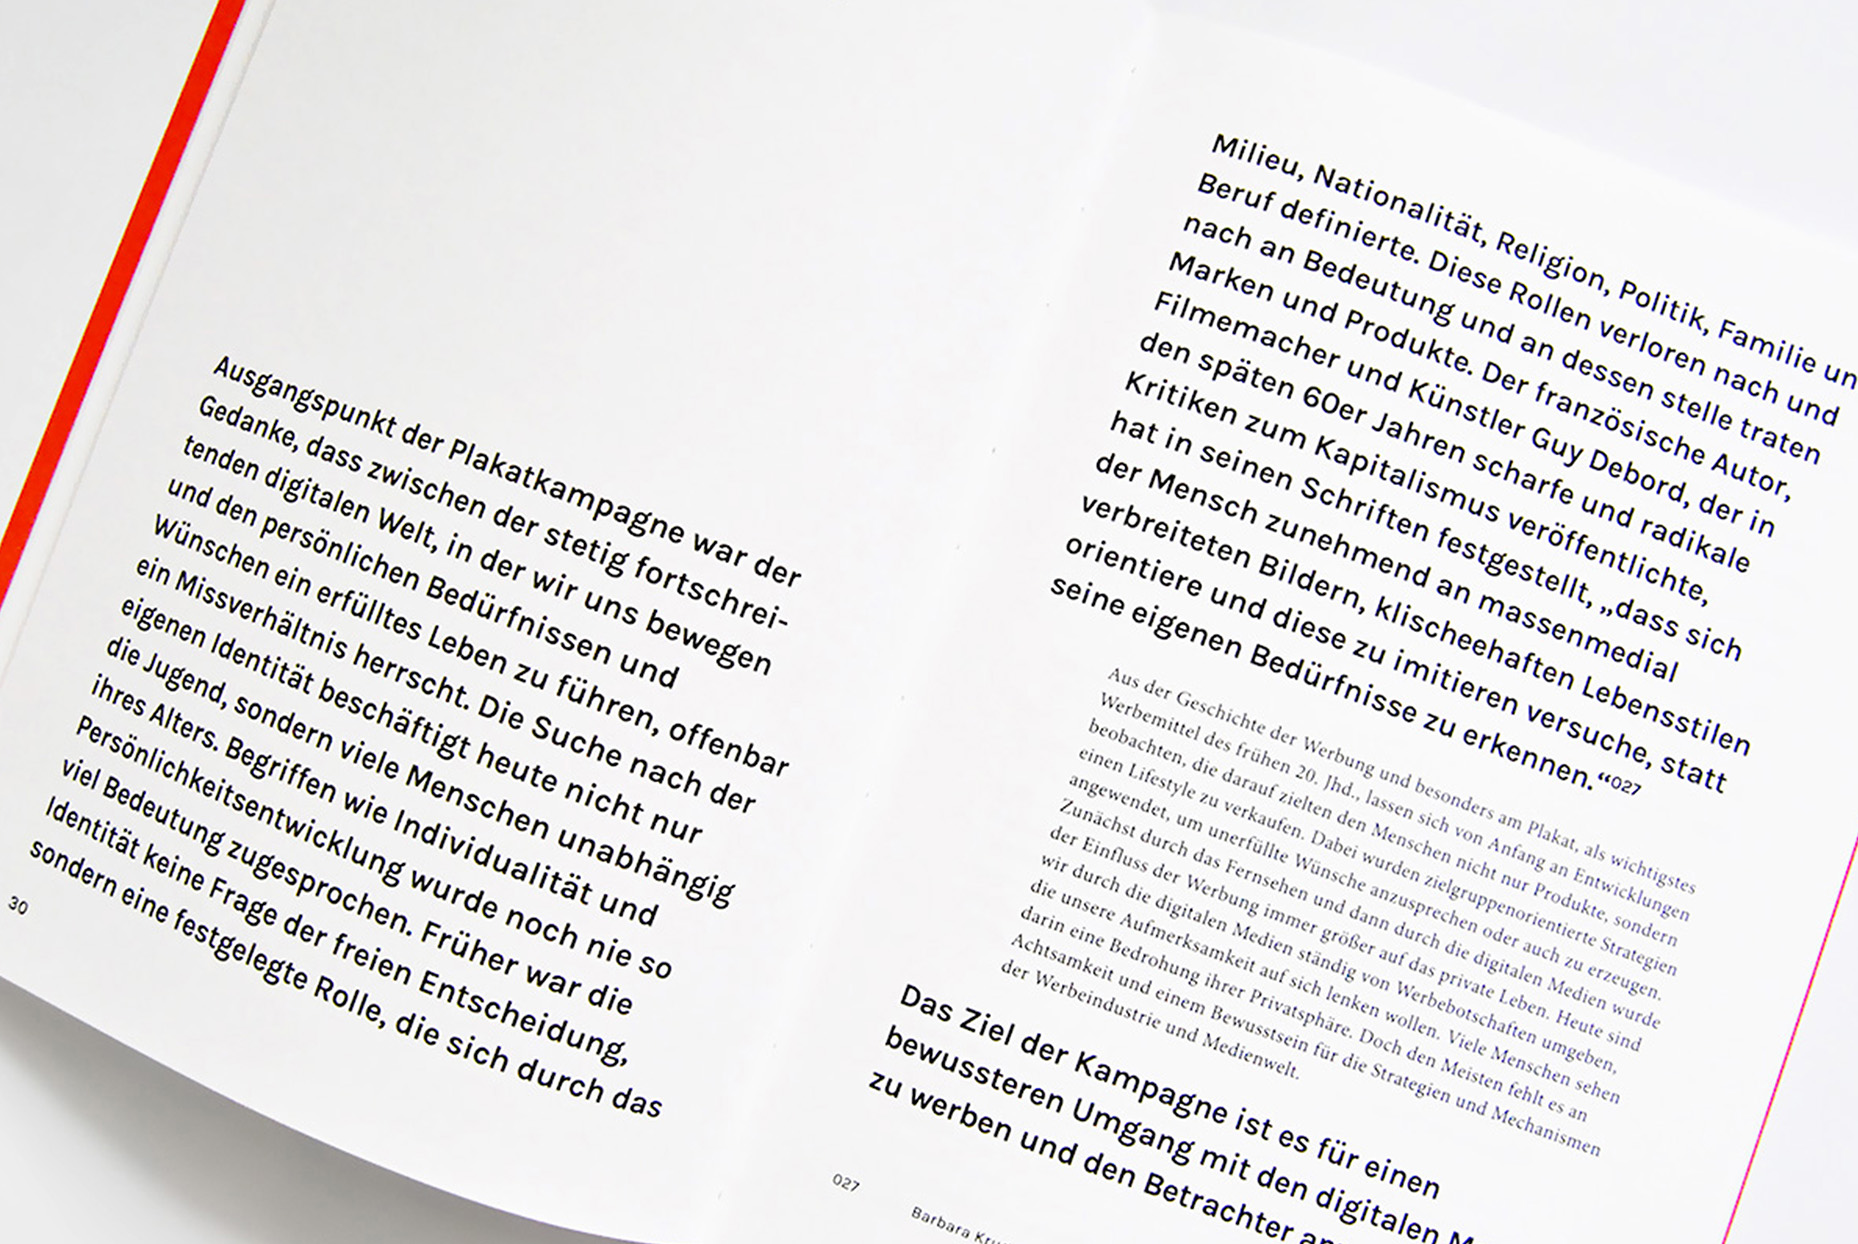 Ausgangspunkt der Plakatkampagne war der
Gedanke, dass zwischen der stetig fortschrei-
tenden digitalen Welt, in der wir uns bewegen
und den persönlichen Bedürfnissen und
Wünschen ein erfülltes Leben zu führen, offenbar
ein Missverhältnis herrscht. Die Suche nach der
eigenen Identität beschäftigt heute nicht nur
die Jugend, sondern viele Menschen unabhängig
ihres Alters. Begriffen wie Individualität und
Persönlichkeitsentwicklung wurde noch nie so
viel Bedeutung zugesprochen. Früher war die
Identität keine Frage der freien Entscheidung,
sondern eine festgelegte Rolle, die sich durch das
30
Milieu, Nationalität, Religion, Politik, Familie un
Beruf definierte. Diese Rollen verloren nach und
nach an Bedeutung und an dessen stelle traten
Marken und Produkte. Der französische Autor,
Filmemacher und Künstler Guy Debord, der in
den späten 60er Jahren scharfe und radikale
Kritiken zum Kapitalismus veröffentlichte,
hat in seinen Schriften festgestellt, „dass sich
der Mensch zunehmend an massenmedial
verbreiteten Bildern, klischeehaften Lebensstilen
orientiere und diese zu imitieren versuche, statt
seine eigenen Bedürfnisse zu erkennen.“027
Aus der Geschichte der Werbung und besonders am Plakat, als wichtigstes
Werbemittel des frühen 20. Jhd., lassen sich von Anfang an Entwicklungen
beobachten, die darauf zielten den Menschen nicht nur Produkte, sondern
einen Lifestyle zu verkaufen. Dabei wurden zielgruppenorientierte Strategien
angewendet, um unerfüllte Wünsche anzusprechen oder auch zu erzeugen.
Zunächst durch das Fernsehen und dann durch die digitalen Medien wurde
der Einfluss der Werbung immer größer auf das private Leben. Heute sind
wir durch die digitalen Medien ständig von Werbebotschaften umgeben,
die unsere Aufmerksamkeit auf sich lenken wollen. Viele Menschen sehen
darin eine Bedrohung ihrer Privatsphäre. Doch den Meisten fehlt es an
Achtsamkeit und einem Bewusstsein für die Strategien und Mechanismen
der Werbeindustrie und Medienwelt.
Das Ziel der Kampagne ist es für einen
bewussteren Umgang mit den digitalen M
zu werben und den Betrachter an
027
Barbara Kru